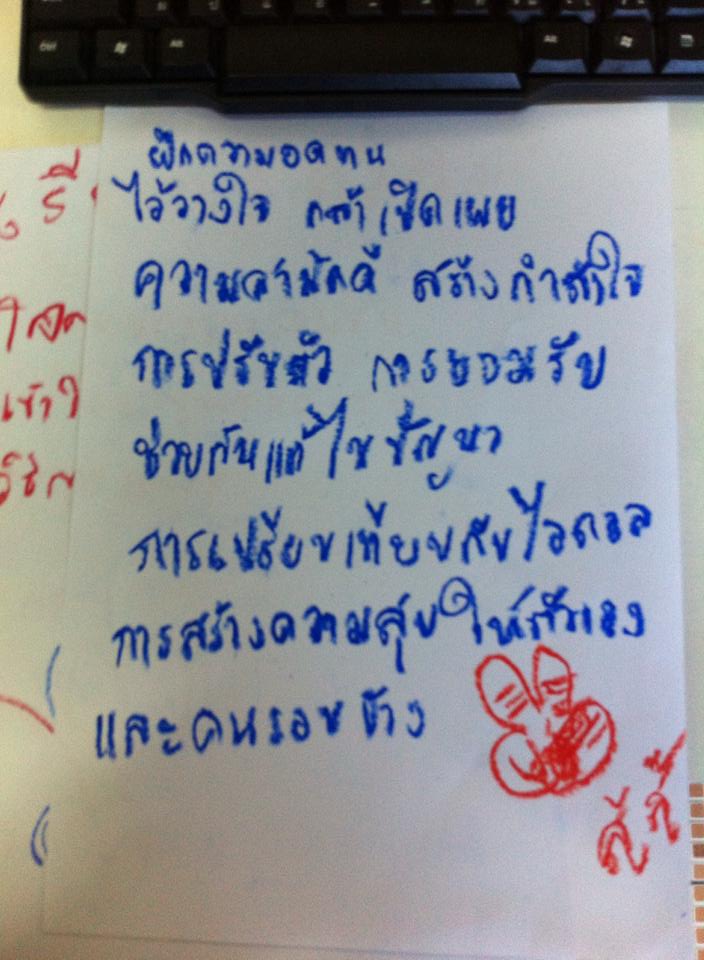 ฝึกความอดทน
ไว้วางใจ กล้าเปิดเผย
ความสามัคคี สร้างกำลังใจ
การปรับตัว การยอมรับ
ช่วยกันแก้ไขปัญหา
การเปรียบเทียบกับไอดอล
การสร้างความสุขให้ตัวเอง
และคนรอบข้าง
สู้ สู้
Ctrl
Alt
Alt